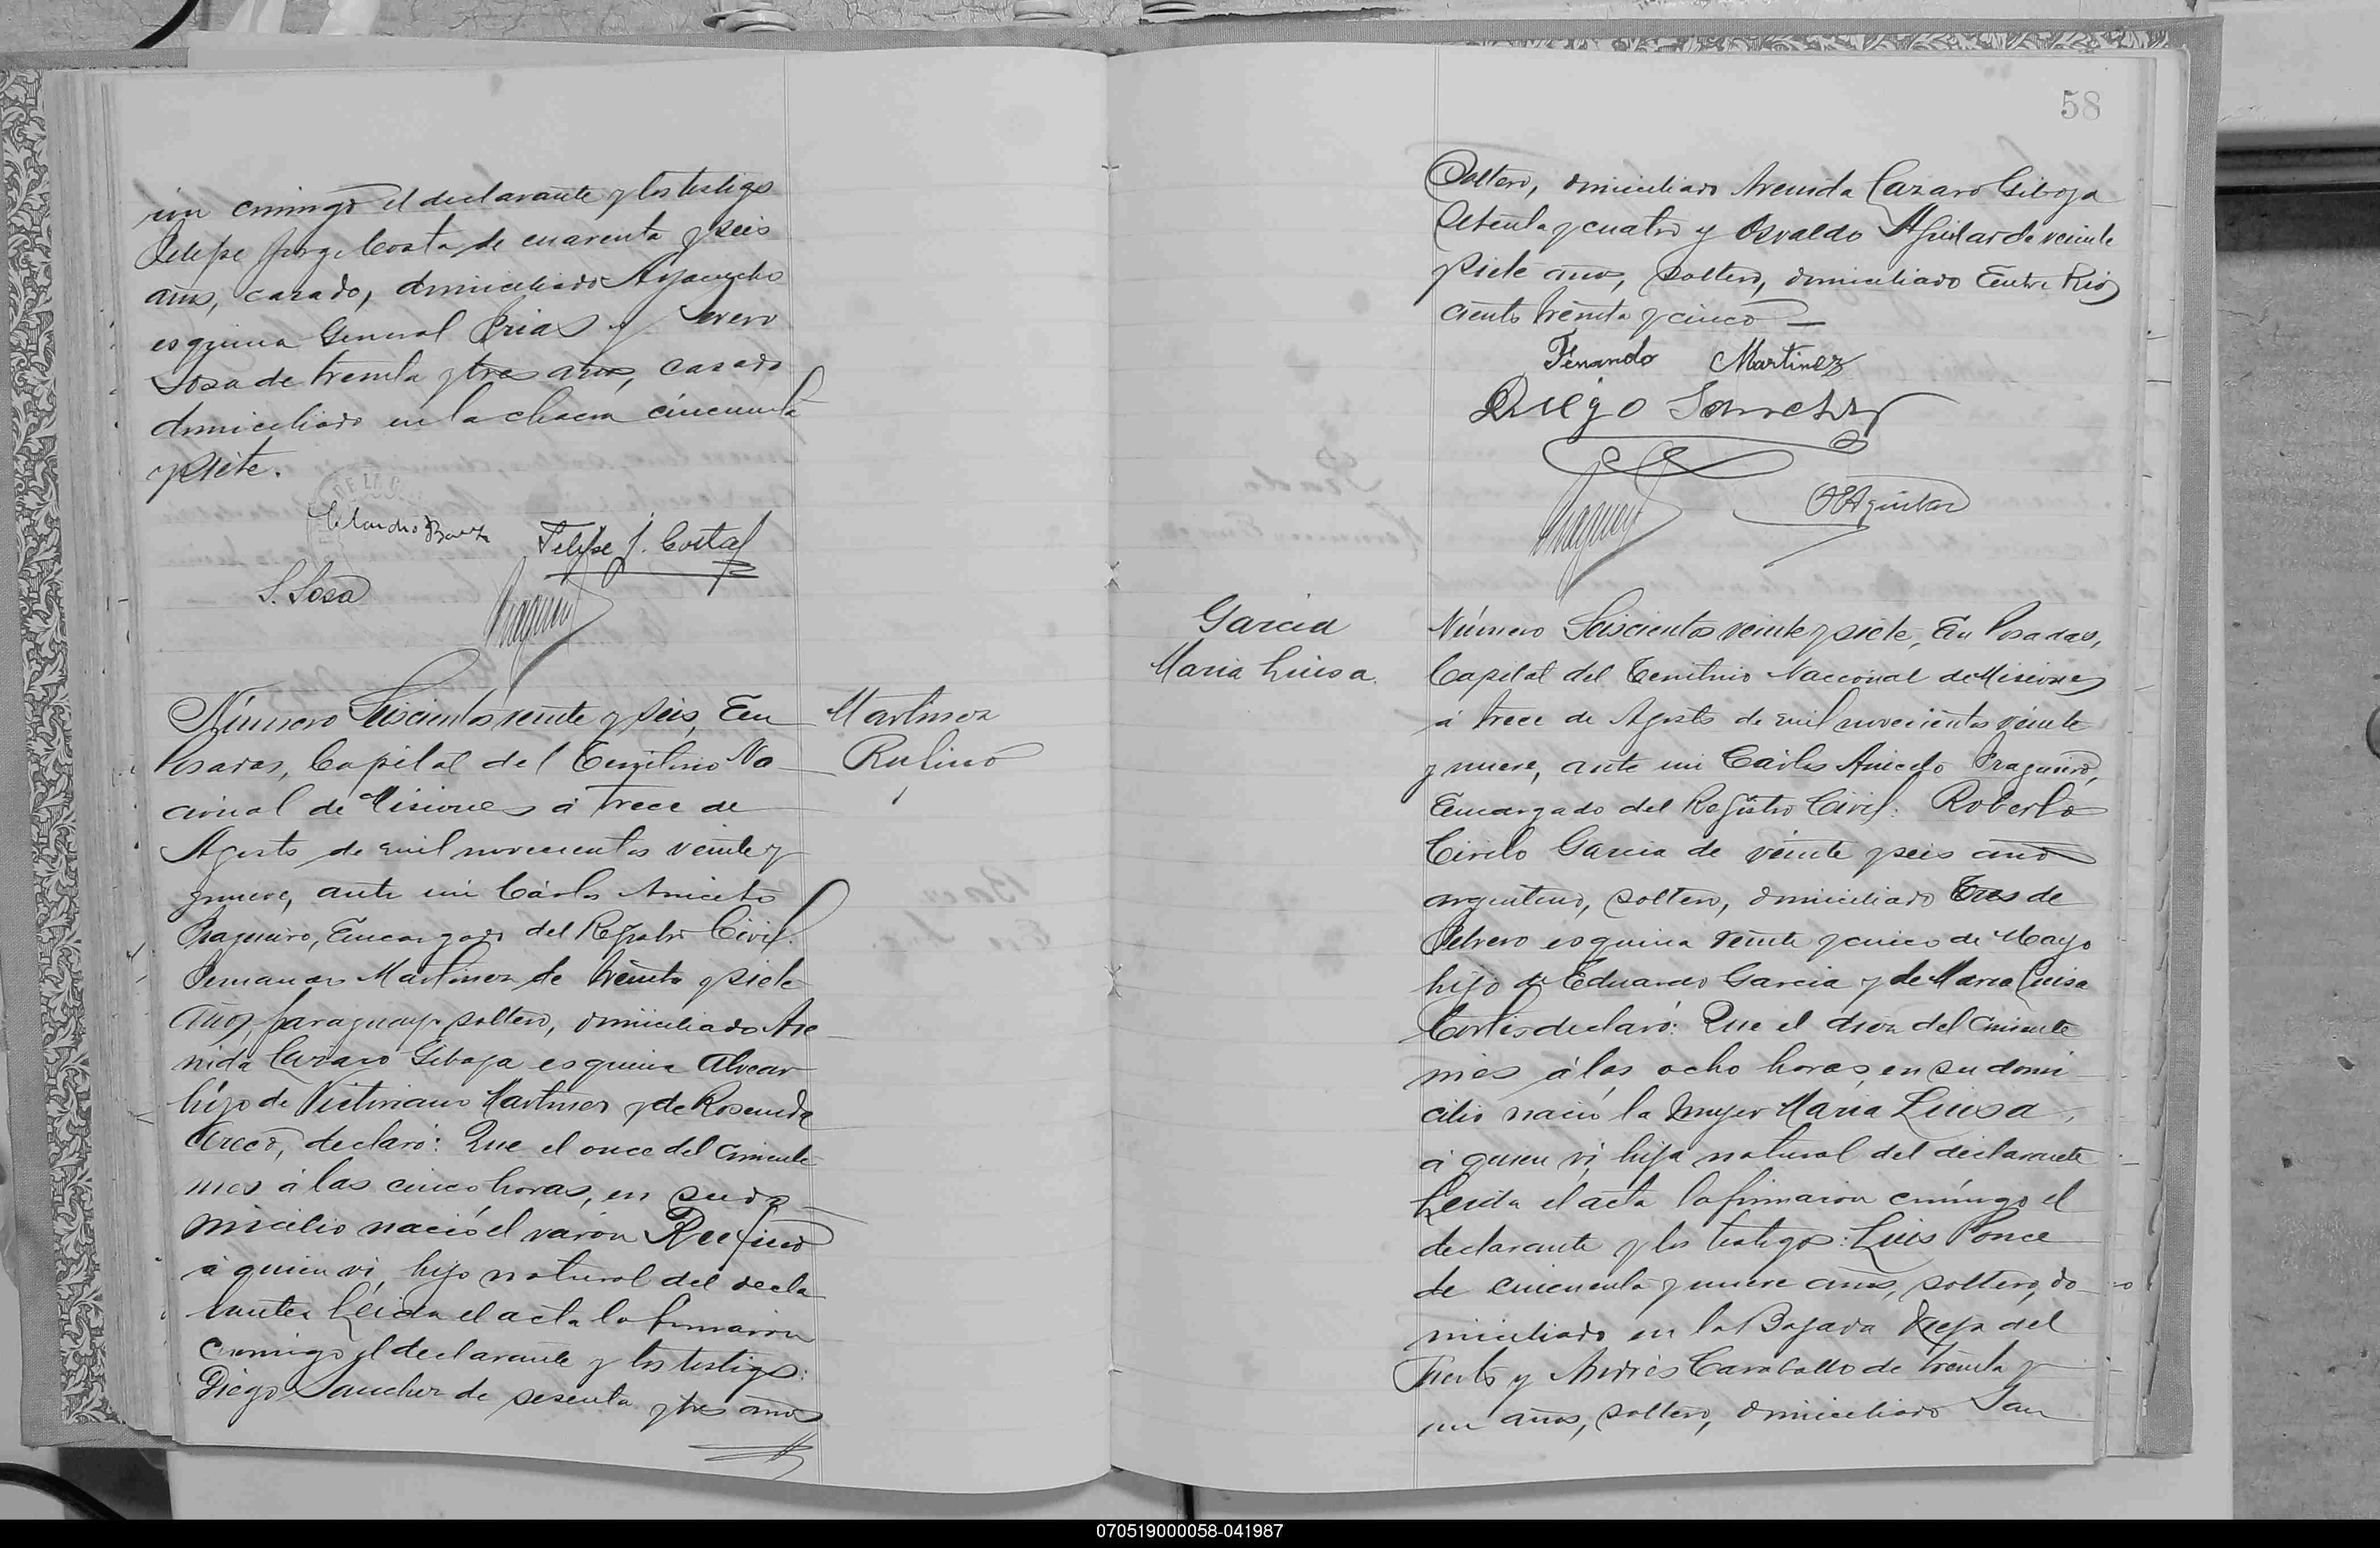 ron conmigo el declarante y los testigos
Felipe Jorge Costa de cuarenta y seis
años, casado, domiciliado Ayacucho
esquina General Frias y Severo
Sosa de treinta y tres años, casado
domiciliado en la chacra cincuenta
y siete.
Felipe J. Costa
S. Sosa
Número Seiscientos veinte y seis, En
Posadas, Capital del Territorio Na
cional de Misiones á trece de
Agosto de mil novecientos veinte y
nueve, ante mi Cárlos Aniceto
Encargado del Registro Civil:
Fernando Martinez de treinta y siete
años, paraguayo soltero, domiciliado Ave
nida Lazaro Gibaja esquina Alvear
hijo de Victoriano Martinez y de Rosenda
declaró: Que el once del corriente
mes á las cinco horas, en su do
micilio nació el varón Rufino
á quien vi, hijo natural del decla
rante. Leida el acta la firmaron
conmigo el declarante y los testigos:
Diego Sanchez de sesenta y tres años
Martinez
Rufino
58
Soltero, domiciliado Avenida Lazaro Gibaja
Setenta y cuatro y Osvaldo Aguilar de veinte
y siete años, soltero, domiciliado Entre Rios
ciento treinta y cinco —
Fernando Martinez
Diego Sanchez
O Aguilar
Garcia
Maria Luisa
Número Seiscientos veinte y siete, En Posadas,
Capital del Territorio Nacional de Misiones
á trece de Agosto de mil novecientos veinte
y nueve, ante mi Cárlos Aniceto
Encargado del Registro Civil: Roberto
Cirilo Garcia de veinte y seis años
argentino, soltero, domiciliado Tres de
Febrero esquina veinte y cinco de Mayo
hijo de Eduardo Garcia y de Maria Luisa
Cortés declaró: Que el diez del corriente
mes á las ocho horas, en su domi
cilio nació la mujer Maria Luisa,
á quien vi, hija natural del declarante
Leida el acta la firmaron conmigo el
declarante y los testigos: Luis Ponce
de cincuenta y nueve años, soltero, do
miciliado en la Bajada Vieja del
Puerto y Andrés Caraballo de treinta y
un años, soltero, domiciliado San
070519000058-041987